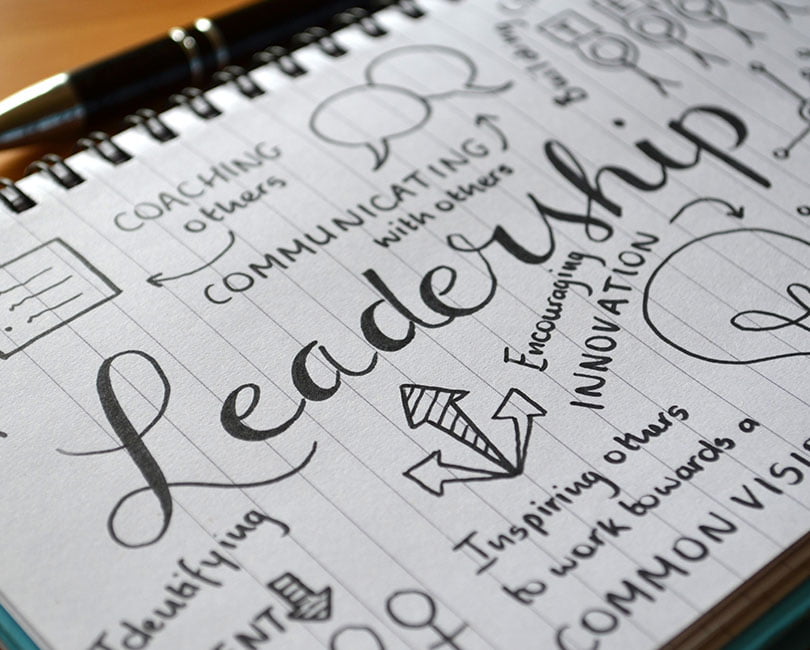 Building
COACHING
others
COMMUNICATING
with others
Leadership
Encouraging
INNOVATION
Inspiring others
to work towards a
COMMON
Identifying